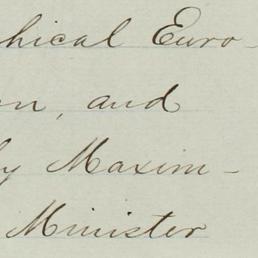 hical Euro-
n, and
y Maxim-
Minister